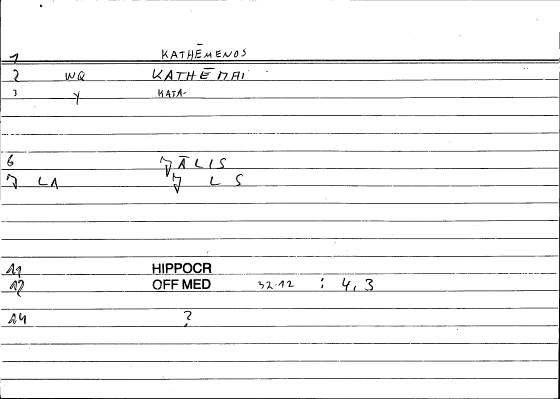 1 KATHĒMENOS
2 WQ KATHĒMAI
3 Y KATA-
6 7 ĀLIS
7 LA 7 LS
11 HIPPOCR
12 OFF MED 32.12 : 4, 3
14 ?